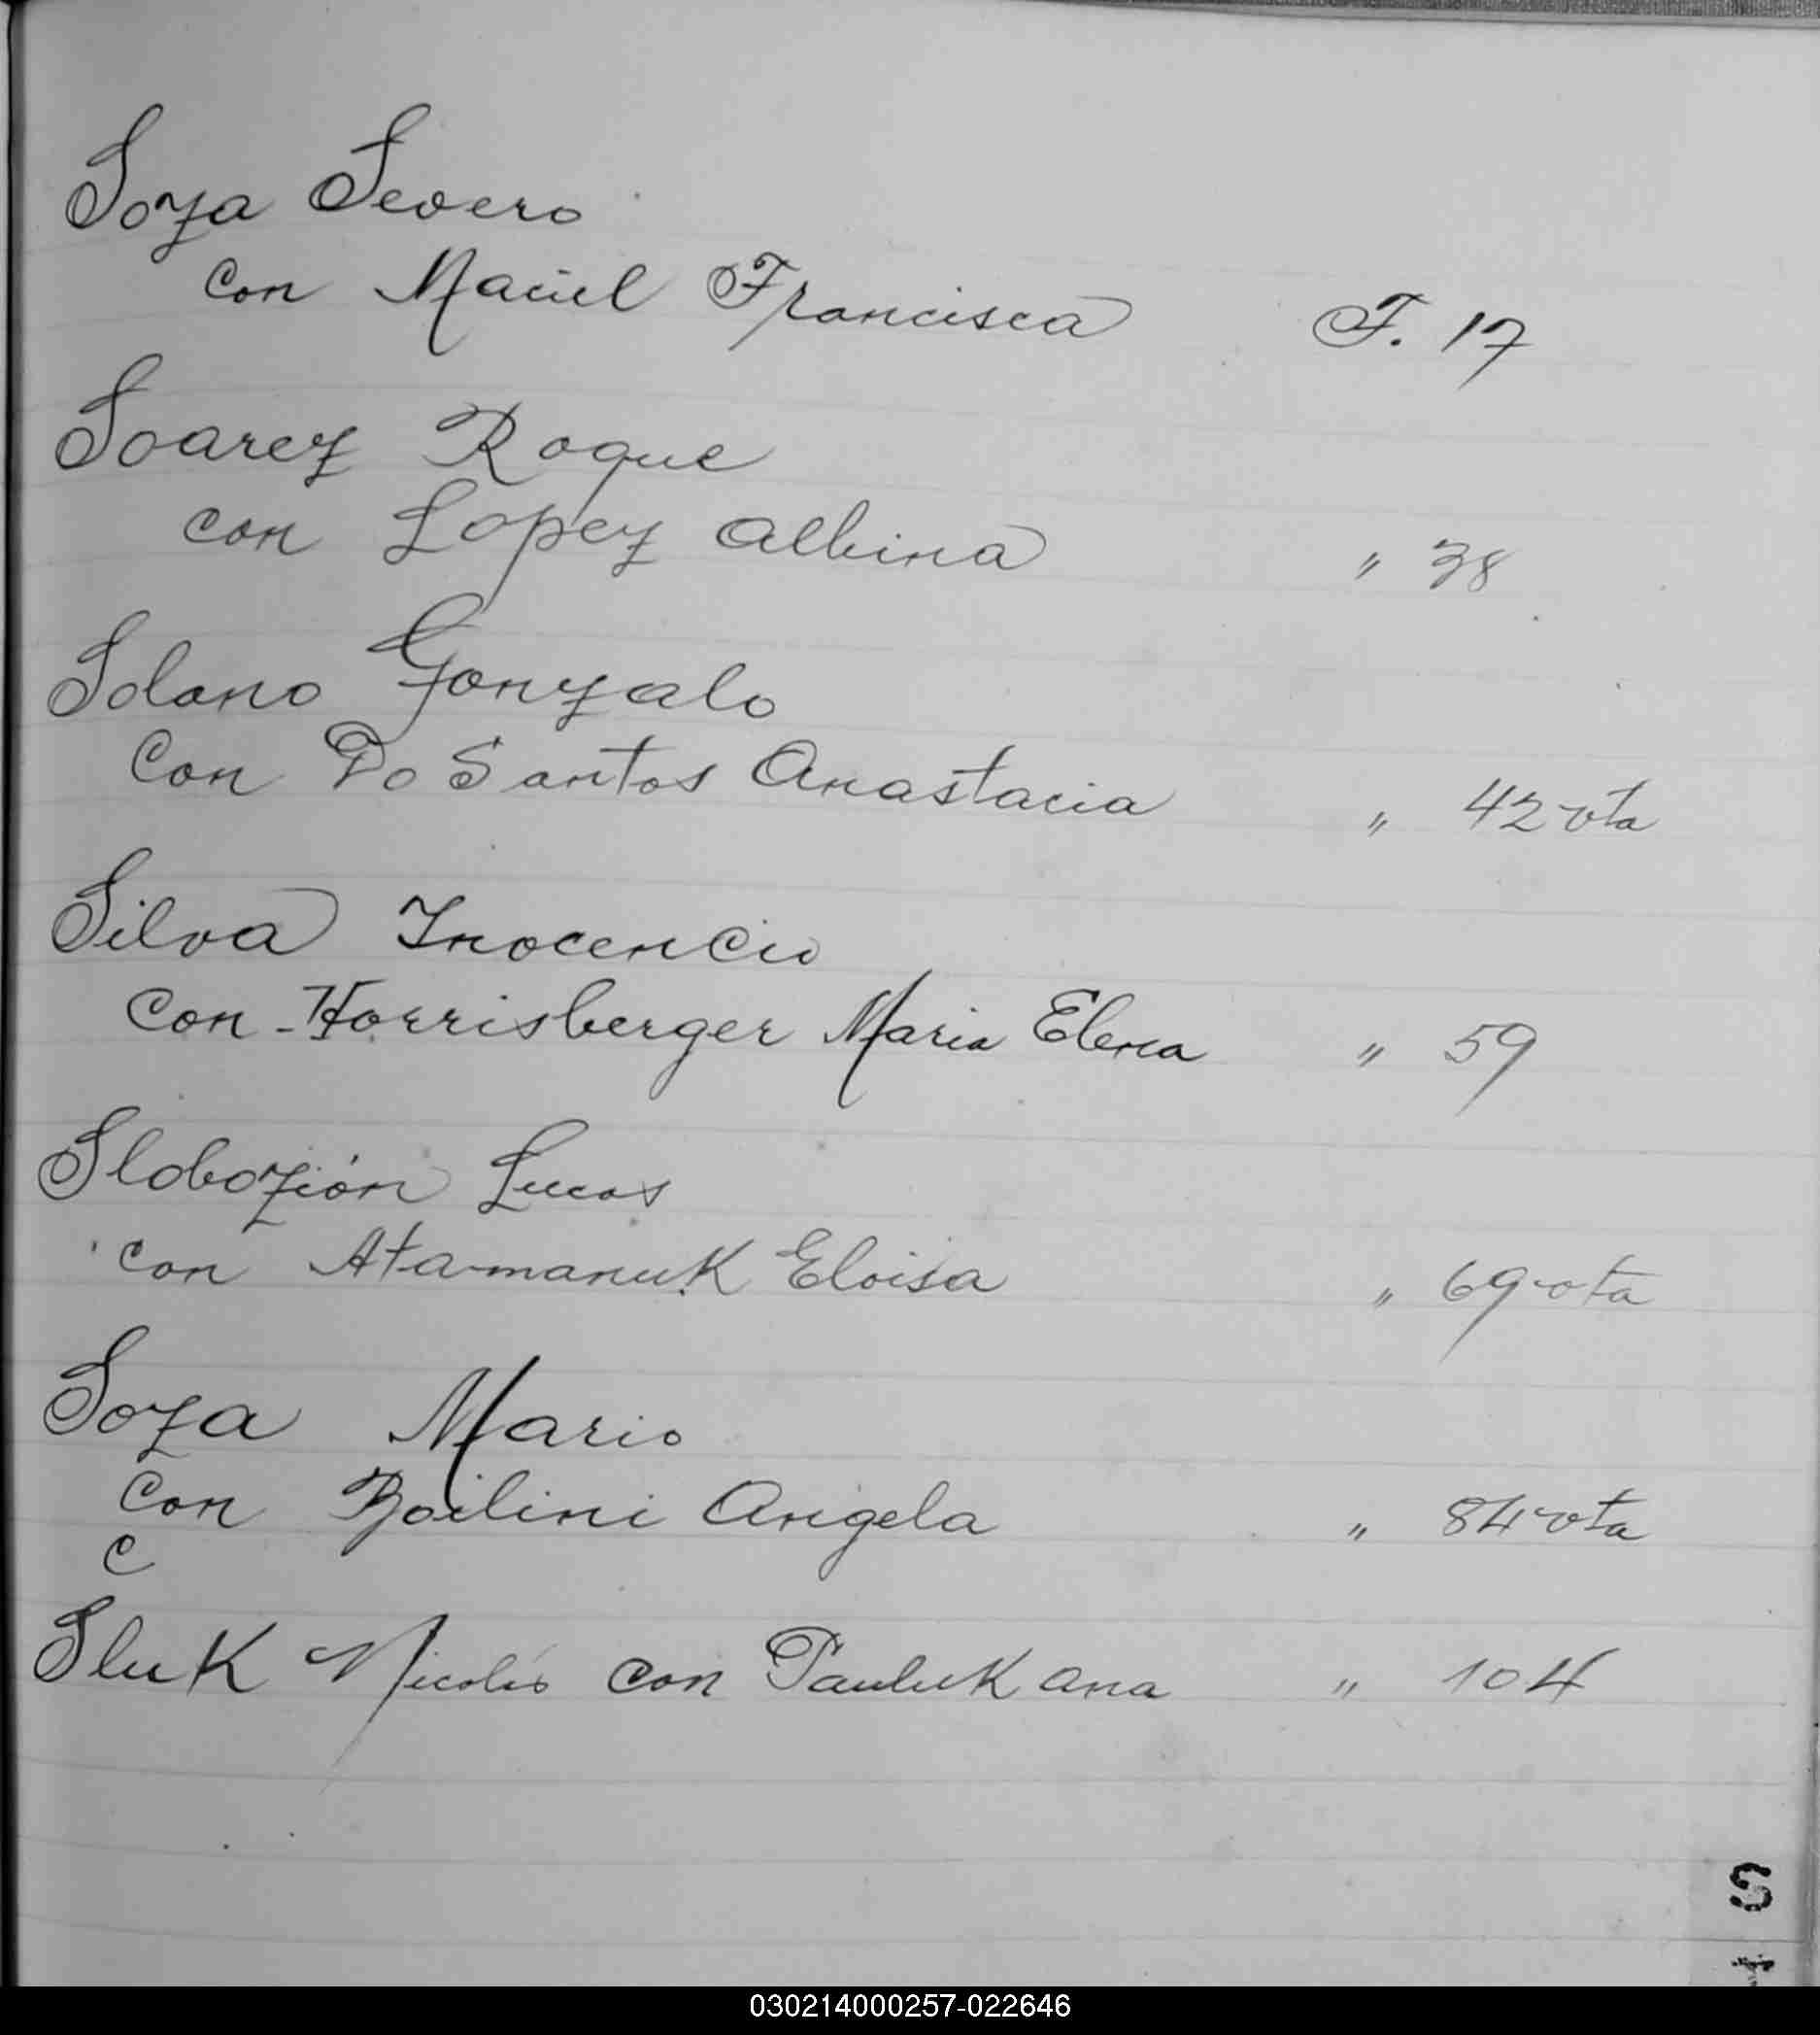 Soza Severo
con Maciel Francisca F. 17
Soarez Roque
con Lopez Albina " 38
Solano Gonzalo
Con Do Santos Anastacia " 42 vta
Silva Inocencio
Con Horrisberger Maria Elena " 59
Slobozión Lucas
con Atamanuk Eloisa " 69 vta
Soza Mario
con Boilini Angela " 84 vta
C
Sluk Nicolás con Pauluk Ana " 104
S
T
030214000257-022646